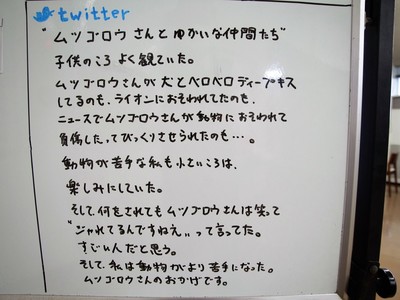 twitter
"ムツゴロウさんとゆかいな仲間たち"
子供のころよく観ていた。
ムツゴロウさんが犬とベロベロディープキス
してるのも、ライオンにおそわれてたのも、
ニュースでムツゴロウさんが動物におそわれて
負傷したってびっくりさせられたのも…。
動物が苦手な私も小さいころは、
楽しみにしていた。
そして、何をされてもムツゴロウさんは笑って
"ジャれてるんですねえ"って言ってた。
すごい人だと思う。
そして、私は動物がより苦手になった。
ムツゴロウさんのおかげです。